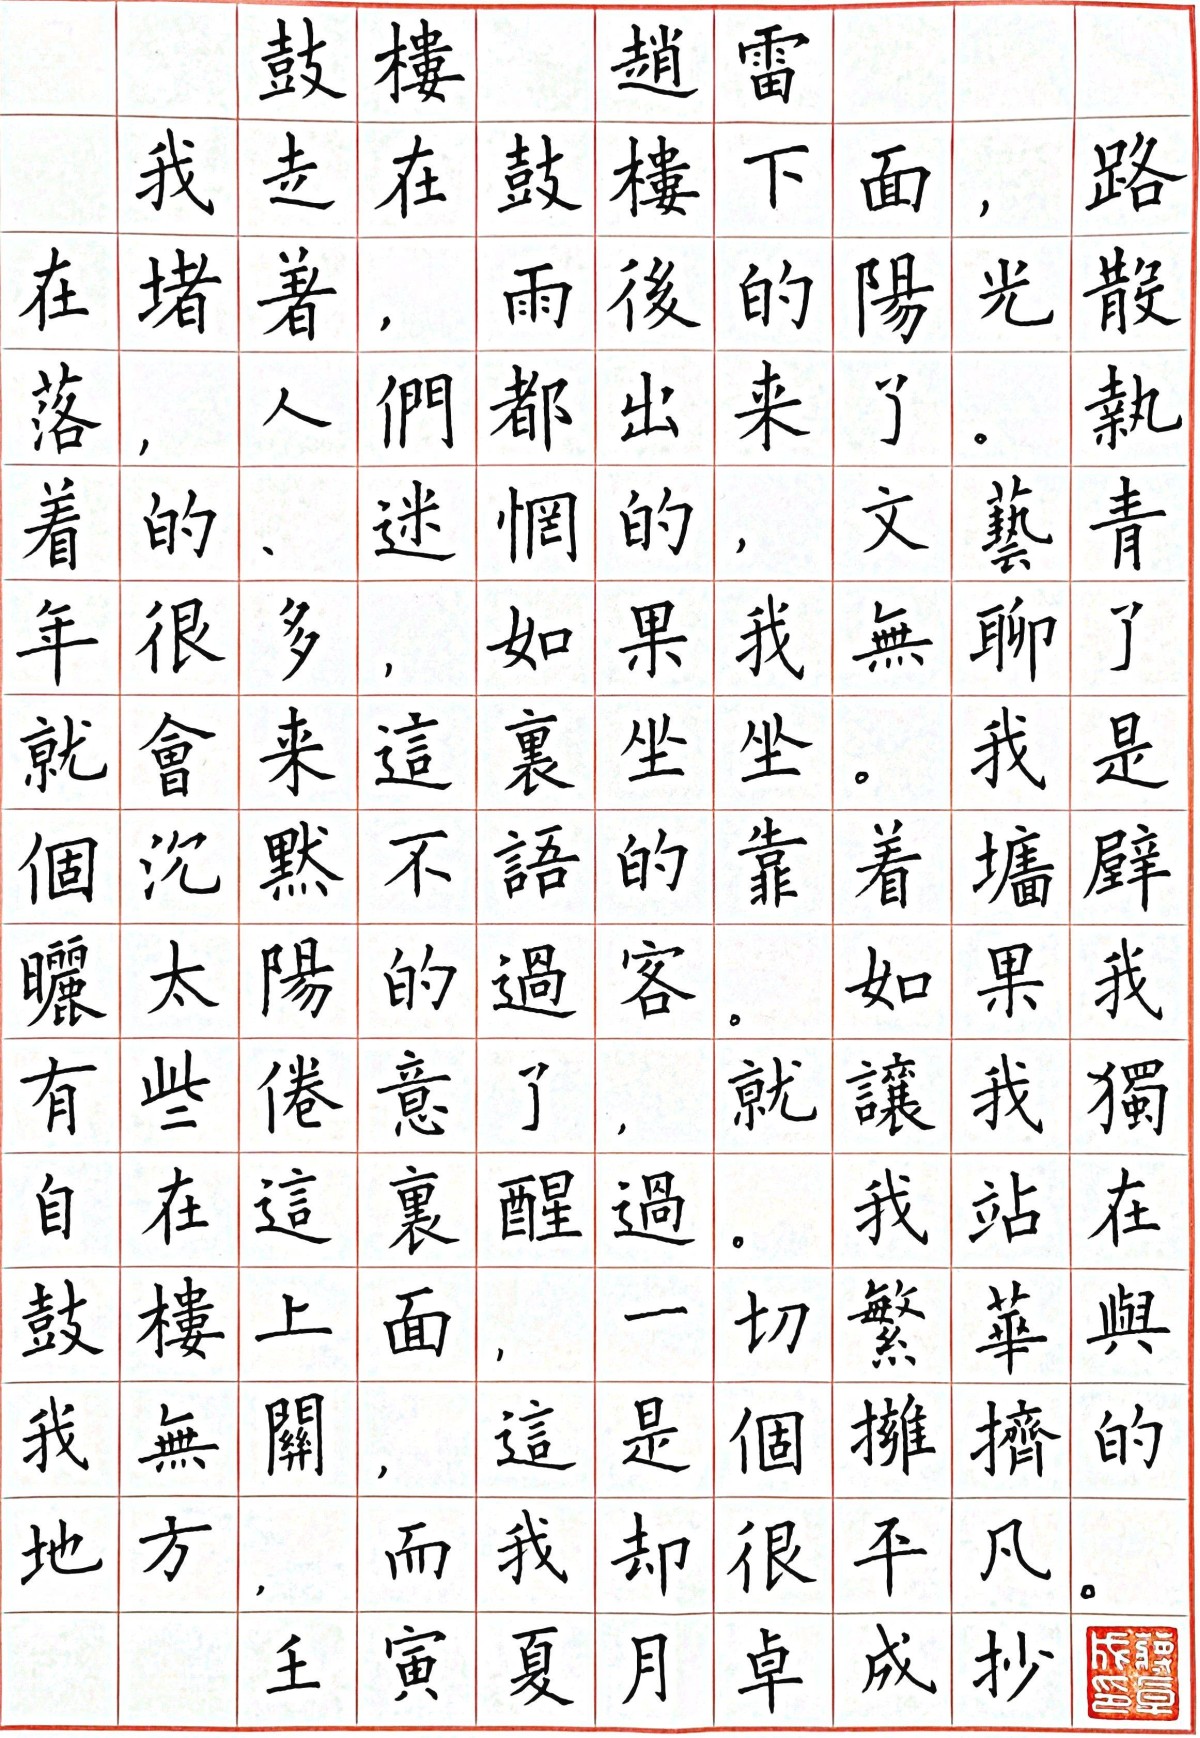 鼓樓 趙雷
我走在鼓樓下面，路
在堵着，雨後的陽光散
落，人們都出来了。執
着的、迷惘的，文藝青
年很多，如果我無聊了
就會来這裏坐坐。我是
個沉默不語的靠着墻壁
曬太陽的過客。如果我
有些倦意了，就讓我獨
自在這裏醒過。我站在
鼓樓上面，一切繁華與
我無關，這是個擁擠的
地方，而我却很平凡。
壬寅夏月卓成抄